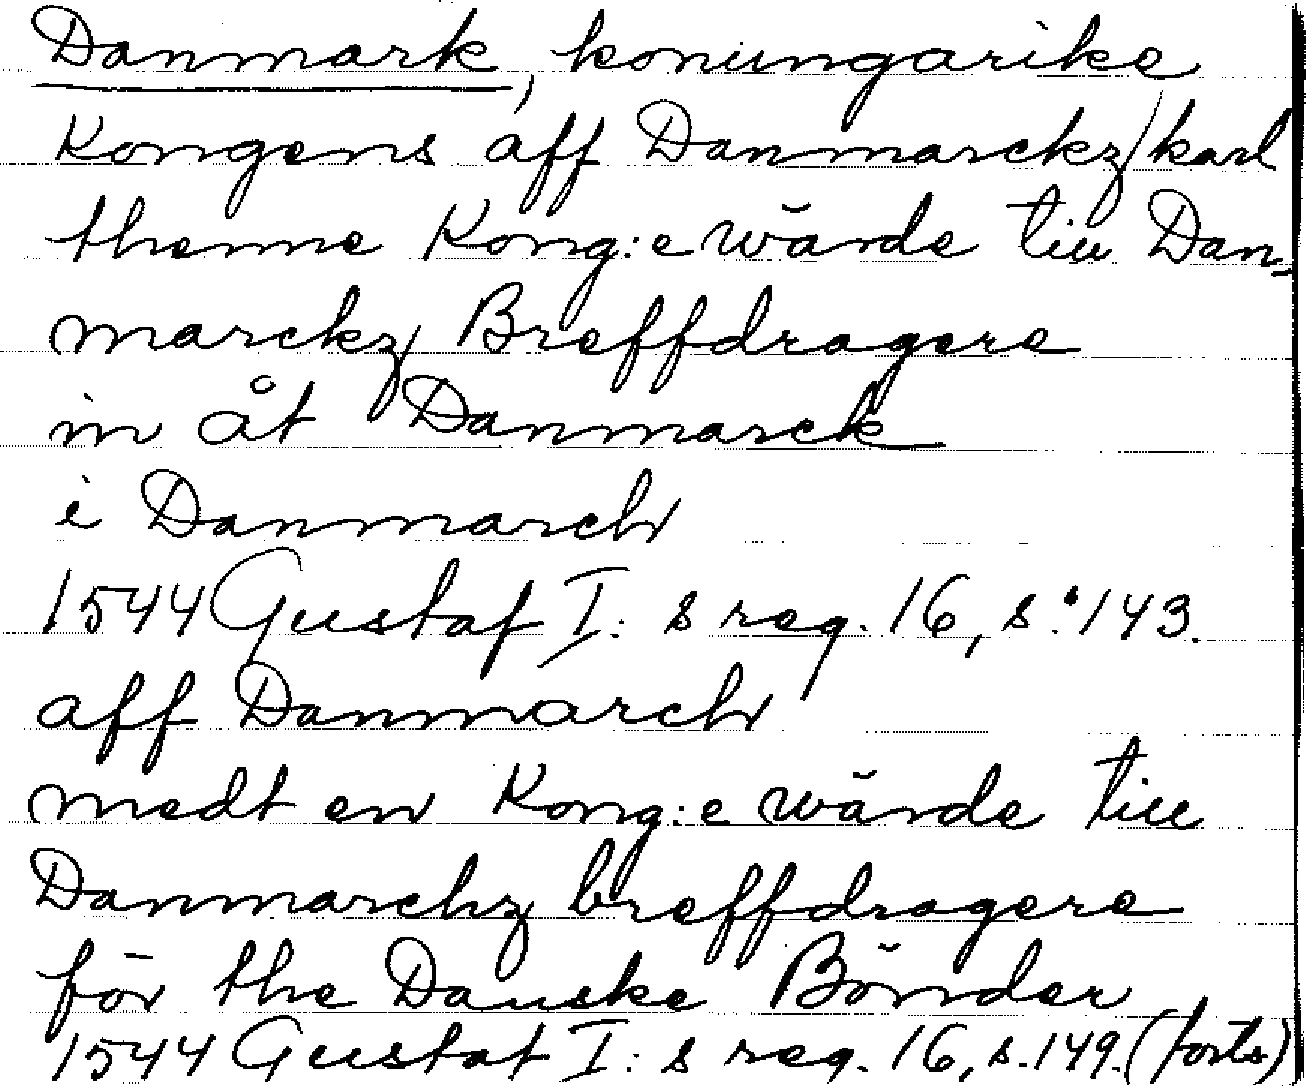 Danmark, konungarike
Kongens aff Danmarckz / karl
thenne Kong:e wärde till Dan-
marckz Breffdragere
in åt Danmarck
i Danmarch
1544 Gustaf I:s reg. 16, s. 143.
aff Danmarch
medt en Kong:e wärde till
Danmarchz breffdragere
för the Danske Bönder
1544 Gustaf I:s reg. 16, s. 149. (forts)